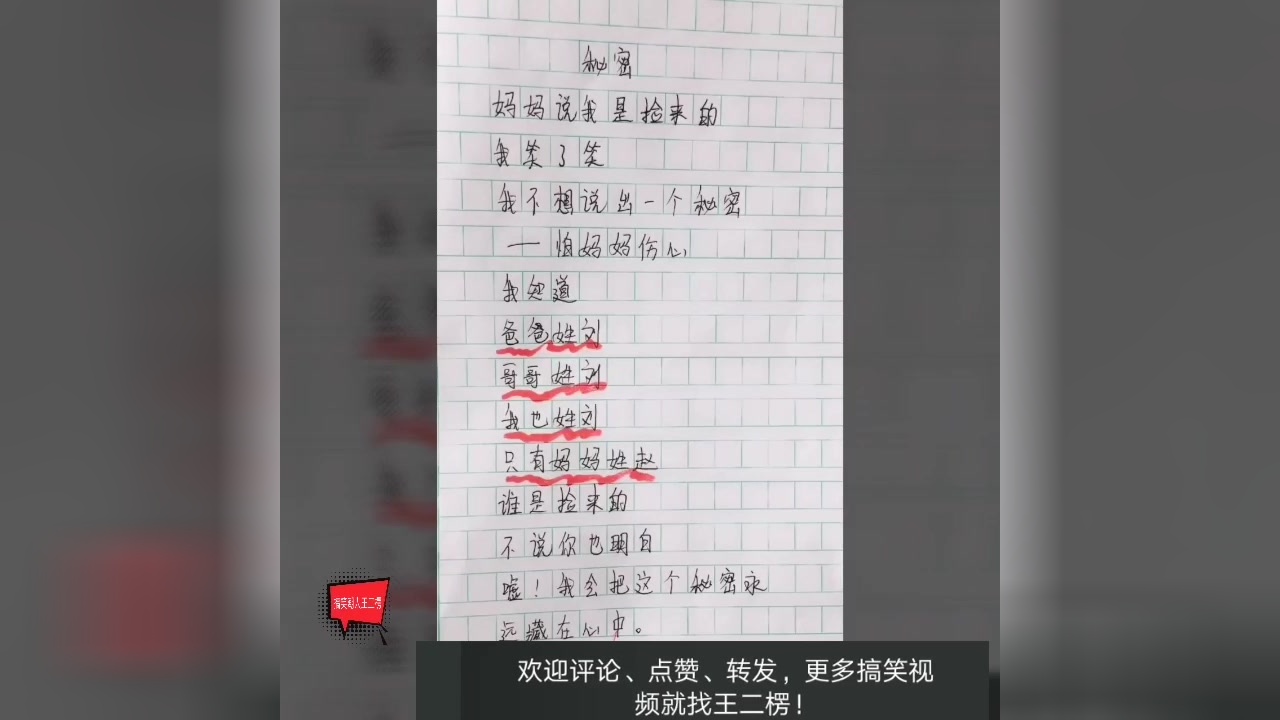 秘密
妈妈说我是捡来的
我笑了笑
我不想说出一个秘密
—怕妈妈伤心
我知道
爸爸姓刘
哥哥姓刘
我也姓刘
只有妈妈姓赵
谁是捡来的
不说你也明白
嘘！我会把这个秘密永
远藏在心中。
搞笑达人王二楞
欢迎评论、点赞、转发，更多搞笑视
频就找王二楞！